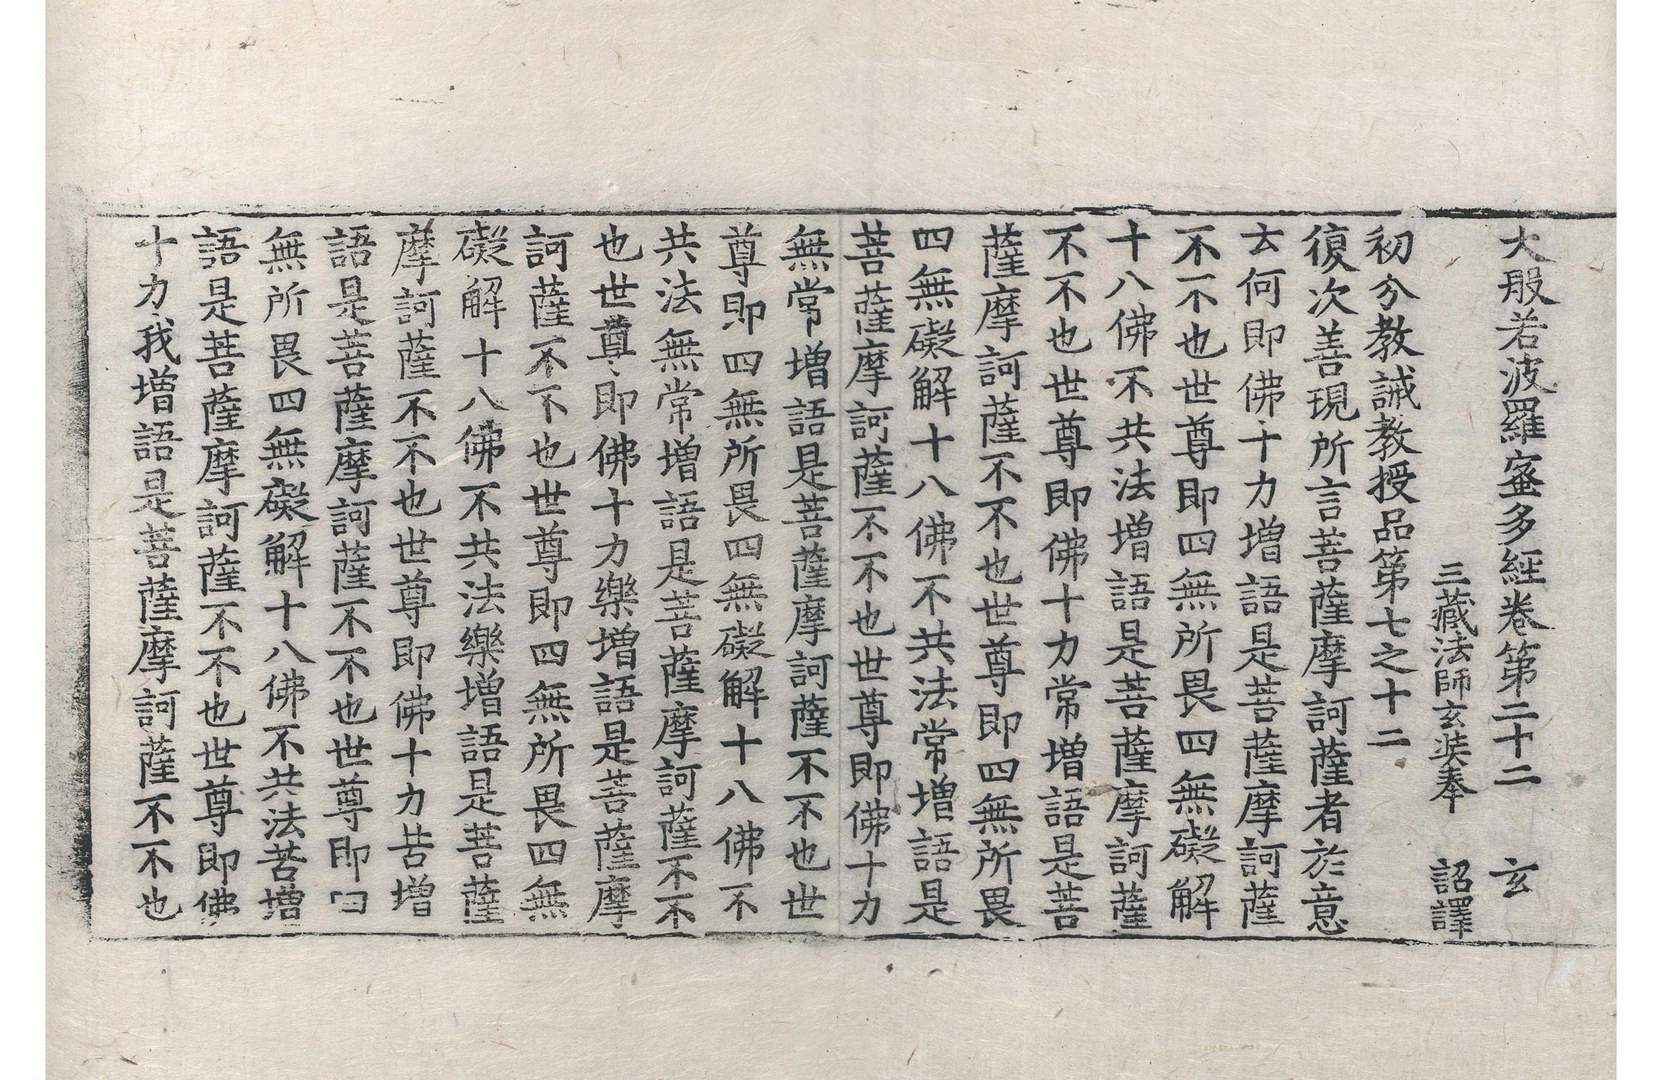 大般若波羅蜜多經卷第二十二 玄
三藏法師玄奘奉 詔譯
初分教誡教授品第七之十二
復次善現所言菩薩摩訶薩者於意
云何即佛十力增語是菩薩摩訶薩
不不也世尊即四無所畏四無礙解
十八佛不共法增語是菩薩摩訶薩
不不也世尊即佛十力常增語是菩
薩摩訶薩不不也世尊即四無所畏
四無礙解十八佛不共法常增語是
菩薩摩訶薩不不也世尊即佛十力
無常增語是菩薩摩訶薩不不也世
尊即四無所畏四無礙解十八佛不
共法無常增語是菩薩摩訶薩不不
也世尊即佛十力樂增語是菩薩摩
訶薩不不也世尊即四無所畏四無
礙解十八佛不共法樂增語是菩薩
摩訶薩不不也世尊即佛十力苦增
語是菩薩摩訶薩不不也世尊即四
無所畏四無礙解十八佛不共法苦增
語是菩薩摩訶薩不不也世尊即佛
十力我增語是菩薩摩訶薩不不也